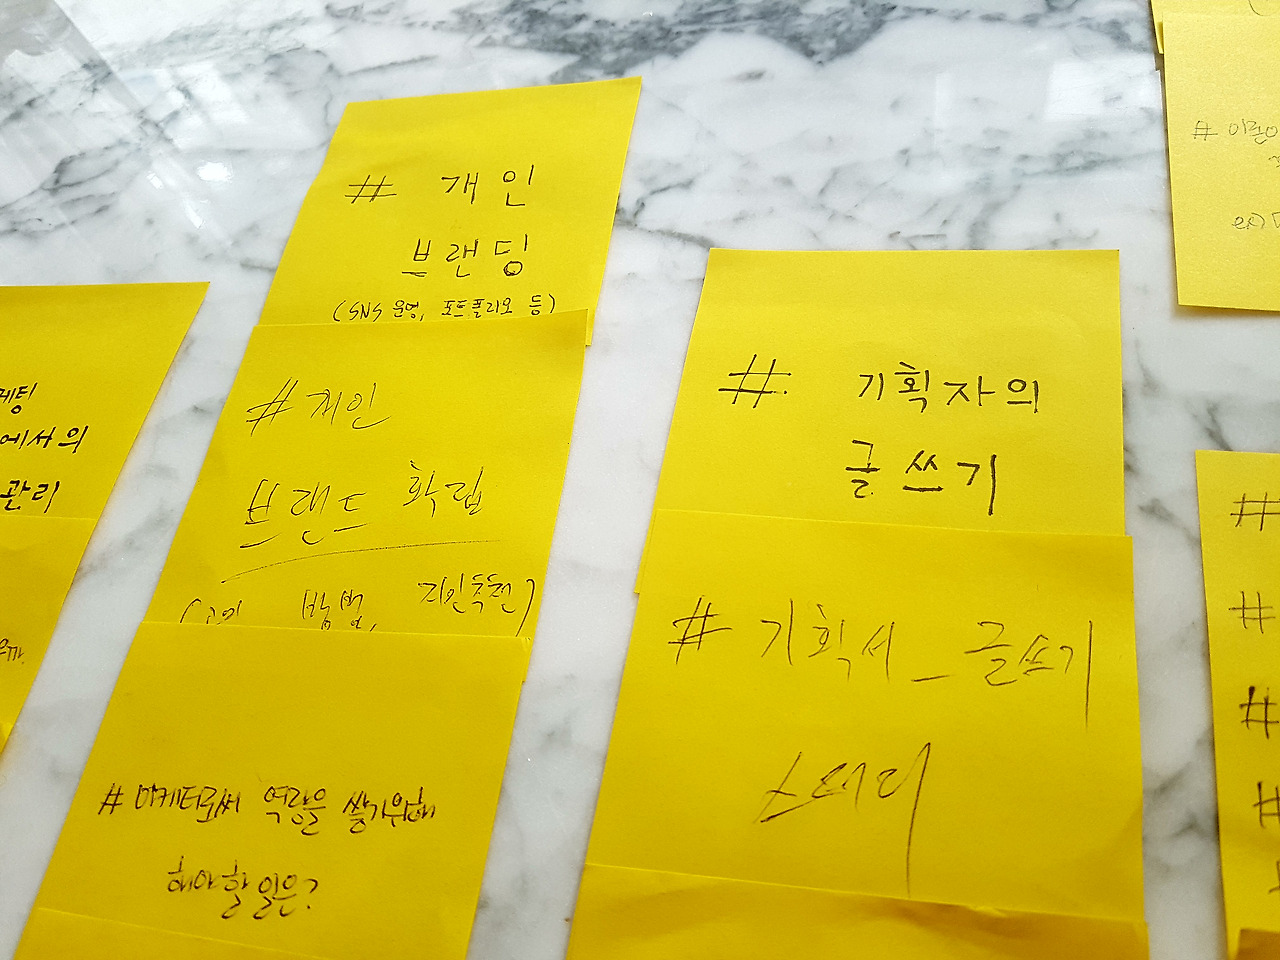 # 개인
브랜딩
(SNS 운영, 포트폴리오 등)
# 개인
브랜드 확립
방법, 지인추천)
# 마케터로써 역량을 쌓기위해
해야할 일은?
# 기획자의
글쓰기
# 기획서_글쓰기
스터디
케팅
에서의
관리
#
#
#
#
#